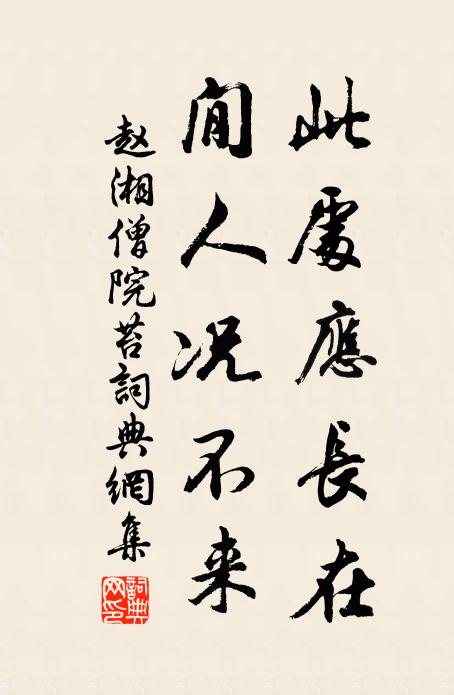 此處應長在
閒人况不来
赵湘僧院苔詞典網集
詞典网印